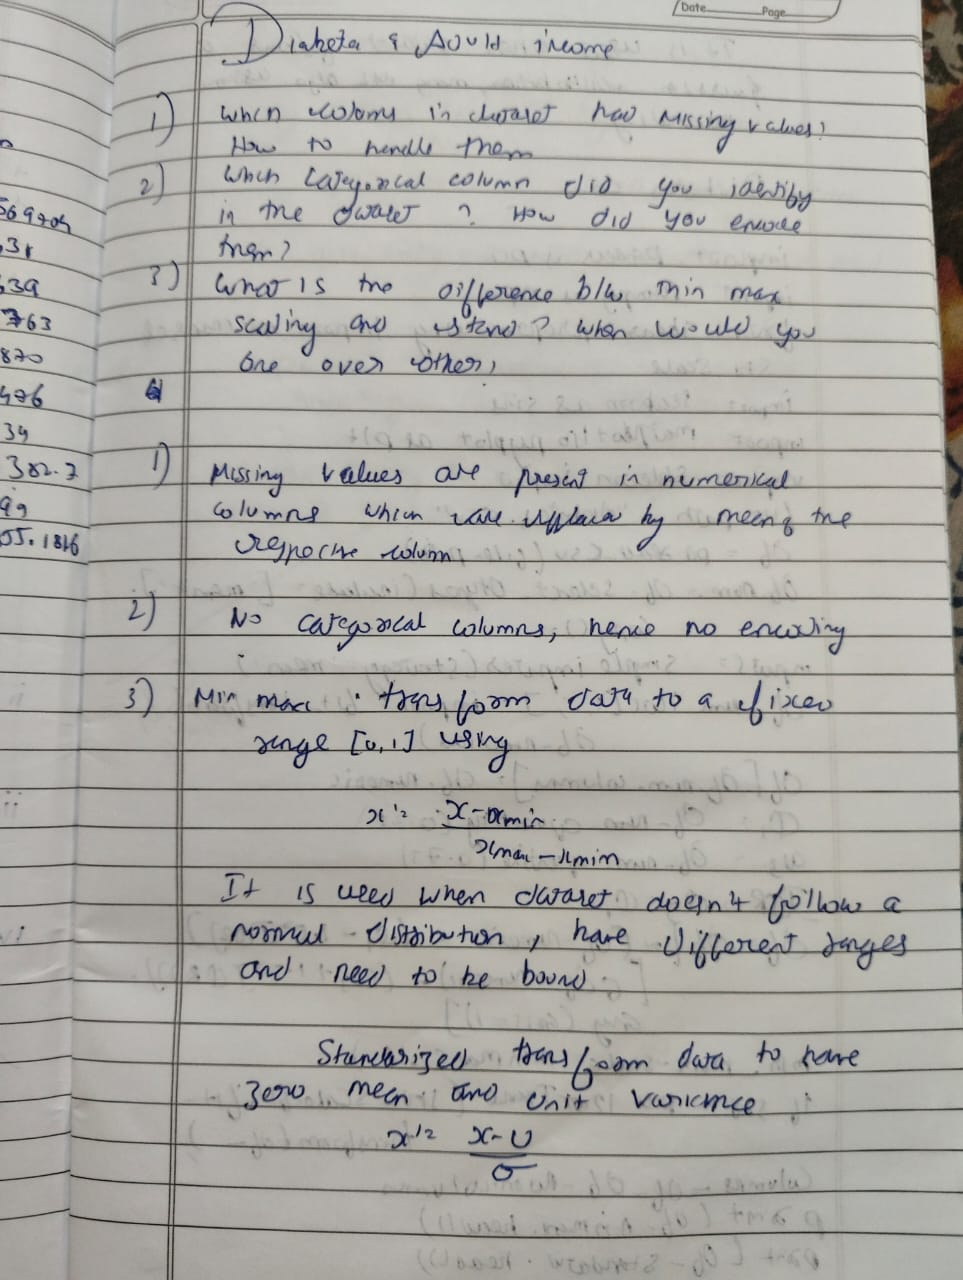 Date Page
Diabeta & Adult income
1) Which coloms in dataset had missing values?
How to handle them
2) Which categorical column did you identify
in the dataset ? How did you encode
them?
3) What is the difference b/w min max
scaling and stand? When would you
one over other,
1) Missing values are present in numerical
columns which are replace by mean of the
respective column
2) No categorical columns, hence no encoding
3) Min max transform data to a fixed
range [0,1] using
x' = x-xmin
xmax - xmin
It is used when dataset doesn't follow a
normal distribution, have different ranges
and need to be bound
Standarized transform data to have
zero mean and unit variance
x' = x-U
σ
569704
31
39
763
870
476
34
382.7
99
55.1816